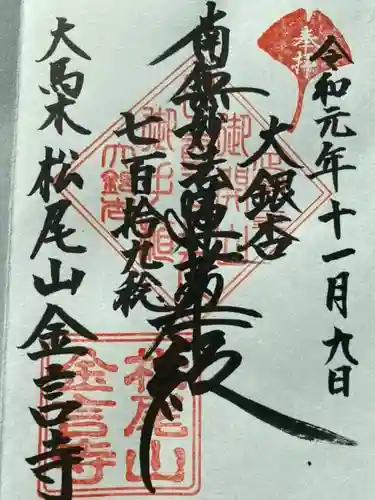 奉拝
令和元年十一月九日
大銀杏
南無妙法蓮華経
七百拾九
大馬木松尾山金言寺
松尾山
金言寺